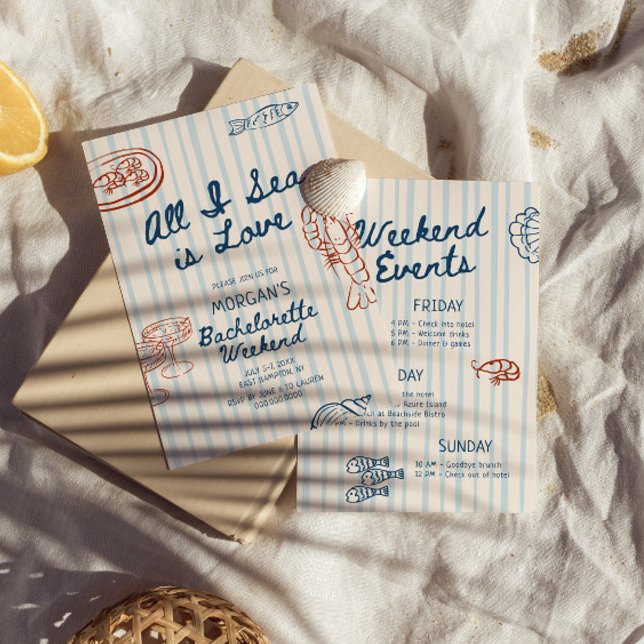 All I Sea
is Love
PLEASE JOIN US FOR
MORGAN'S
Bachelorette
Weekend
JULY 5-7, 20XX
EAST HAMPTON, NY
RSVP BY JUNE 6 TO LAUREN
000.000.0000
Weekend
Events
FRIDAY
4 PM - Check into hotel
5 PM - Welcome drinks
6 PM - Dinner & games
DAY
the hotel
Azure Island
at Beachside Bistro
- Drinks by the pool
SUNDAY
10 AM - Goodbye brunch
12 PM - Check out of hotel